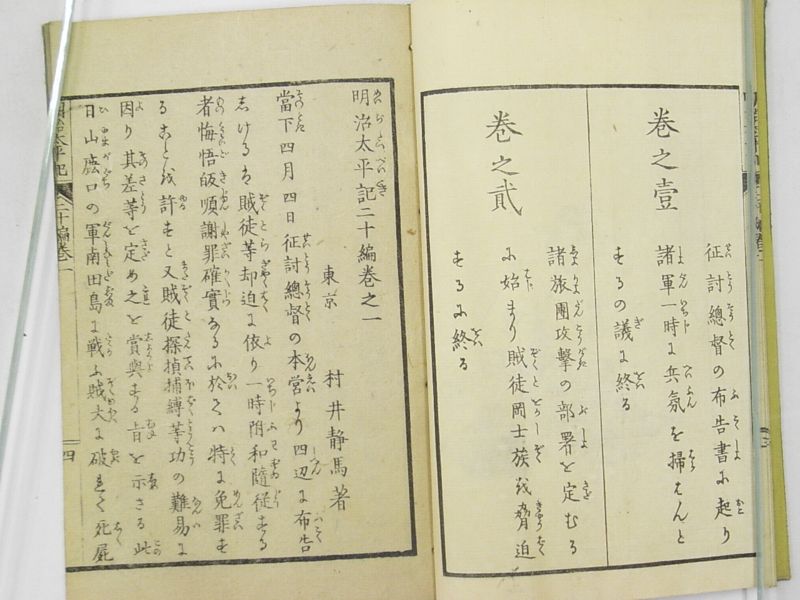 巻之壹
征討總督の布告書に起り
諸軍一時に兵氛を掃はんと
するの議に終る
巻之貳
諸旅團攻撃の部署を定むる
に始まり賊徒岡士族を脅迫
するに終る
明治太平記二十編巻之一
東京 村井静馬著
當下四月四日征討總督の本営より四辺に布告
しけるは賊徒等却迫に依り一時附和隨従する
者悔悟皈順謝罪確實なるに於ては特に免罪す
ることを許すと又賊徒探偵捕縛等功の難易に
因り其差等を定め之を賞與する旨を示さる此
日山鹿口の軍南田島に戦ふ賊大に破れて死屍
明治太平記 二十編巻一 四